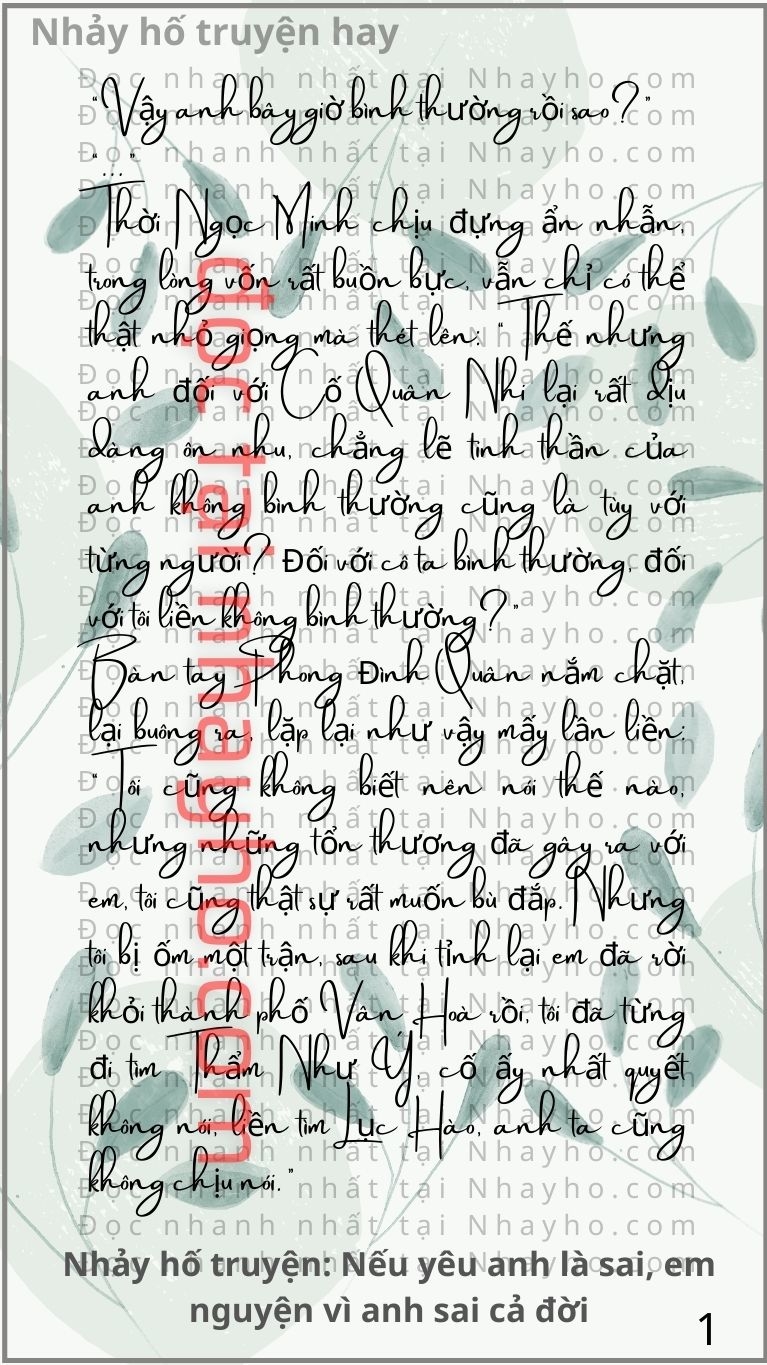 Nhảy hố truyện hay
Đọc nhanh nhất tại Nhayho.com
“Vậy anh bây giờ bình thường rồi sao?”
“...”
Thời Ngọc Minh chịu đựng ẩn nhẫn,
trong lòng vốn rất buồn bực, vẫn chỉ có thể
thật nhỏ giọng mà thét lên: “Thế nhưng
anh đối với Cố Quân Nhi lại rất dịu
dàng ôn nhu, chẳng lẽ tinh thần của
anh không bình thường cũng là tùy với
từng người? Đối với cô ta bình thường, đối
với tôi liền không bình thường?”
Bàn tay Phong Đình Quân nắm chặt,
lại buông ra, lặp lại như vậy mấy lần liền:
“Tôi cũng không biết nên nói thế nào,
nhưng những tổn thương đã gây ra với
em, tôi cũng thật sự rất muốn bù đắp. Nhưng
tôi bị ốm một trận, sau khi tỉnh lại em đã rời
khỏi thành phố Vân Hoà rồi, tôi đã từng
đi tìm Thẩm Như Ý, cố ấy nhất quyết
không nói, liền tìm Lục Hào, anh ta cũng
không chịu nói.”
đọc tại nhayho.com
Nhảy hố truyện: Nếu yêu anh là sai, em
nguyện vì anh sai cả đời
1